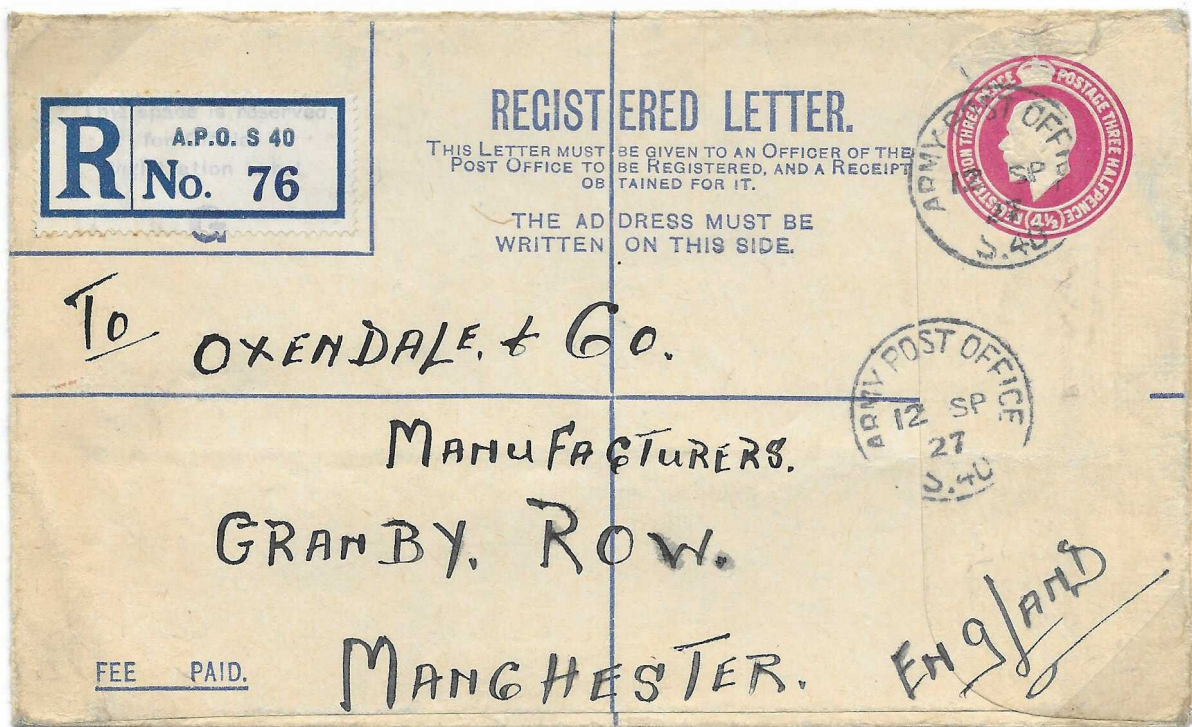 R
A.P.O. S 40
No. 76
REGISTERED LETTER.
THIS LETTER MUST BE GIVEN TO AN OFFICER OF THE
POST OFFICE TO BE REGISTERED, AND A RECEIPT
OBTAINED FOR IT.
THE ADDRESS MUST BE
WRITTEN ON THIS SIDE.
POSTAGE THREE HALFPENCE
4½
ARMY POST OFFICE
12 SP
27
S.40
To
OXENDALE. & Co.
ARMY POST OFFICE
12 SP
27
S.40
MANUFACTURERS.
GRANBY. ROW.
MANCHESTER.
ENGLAND
FEE PAID.